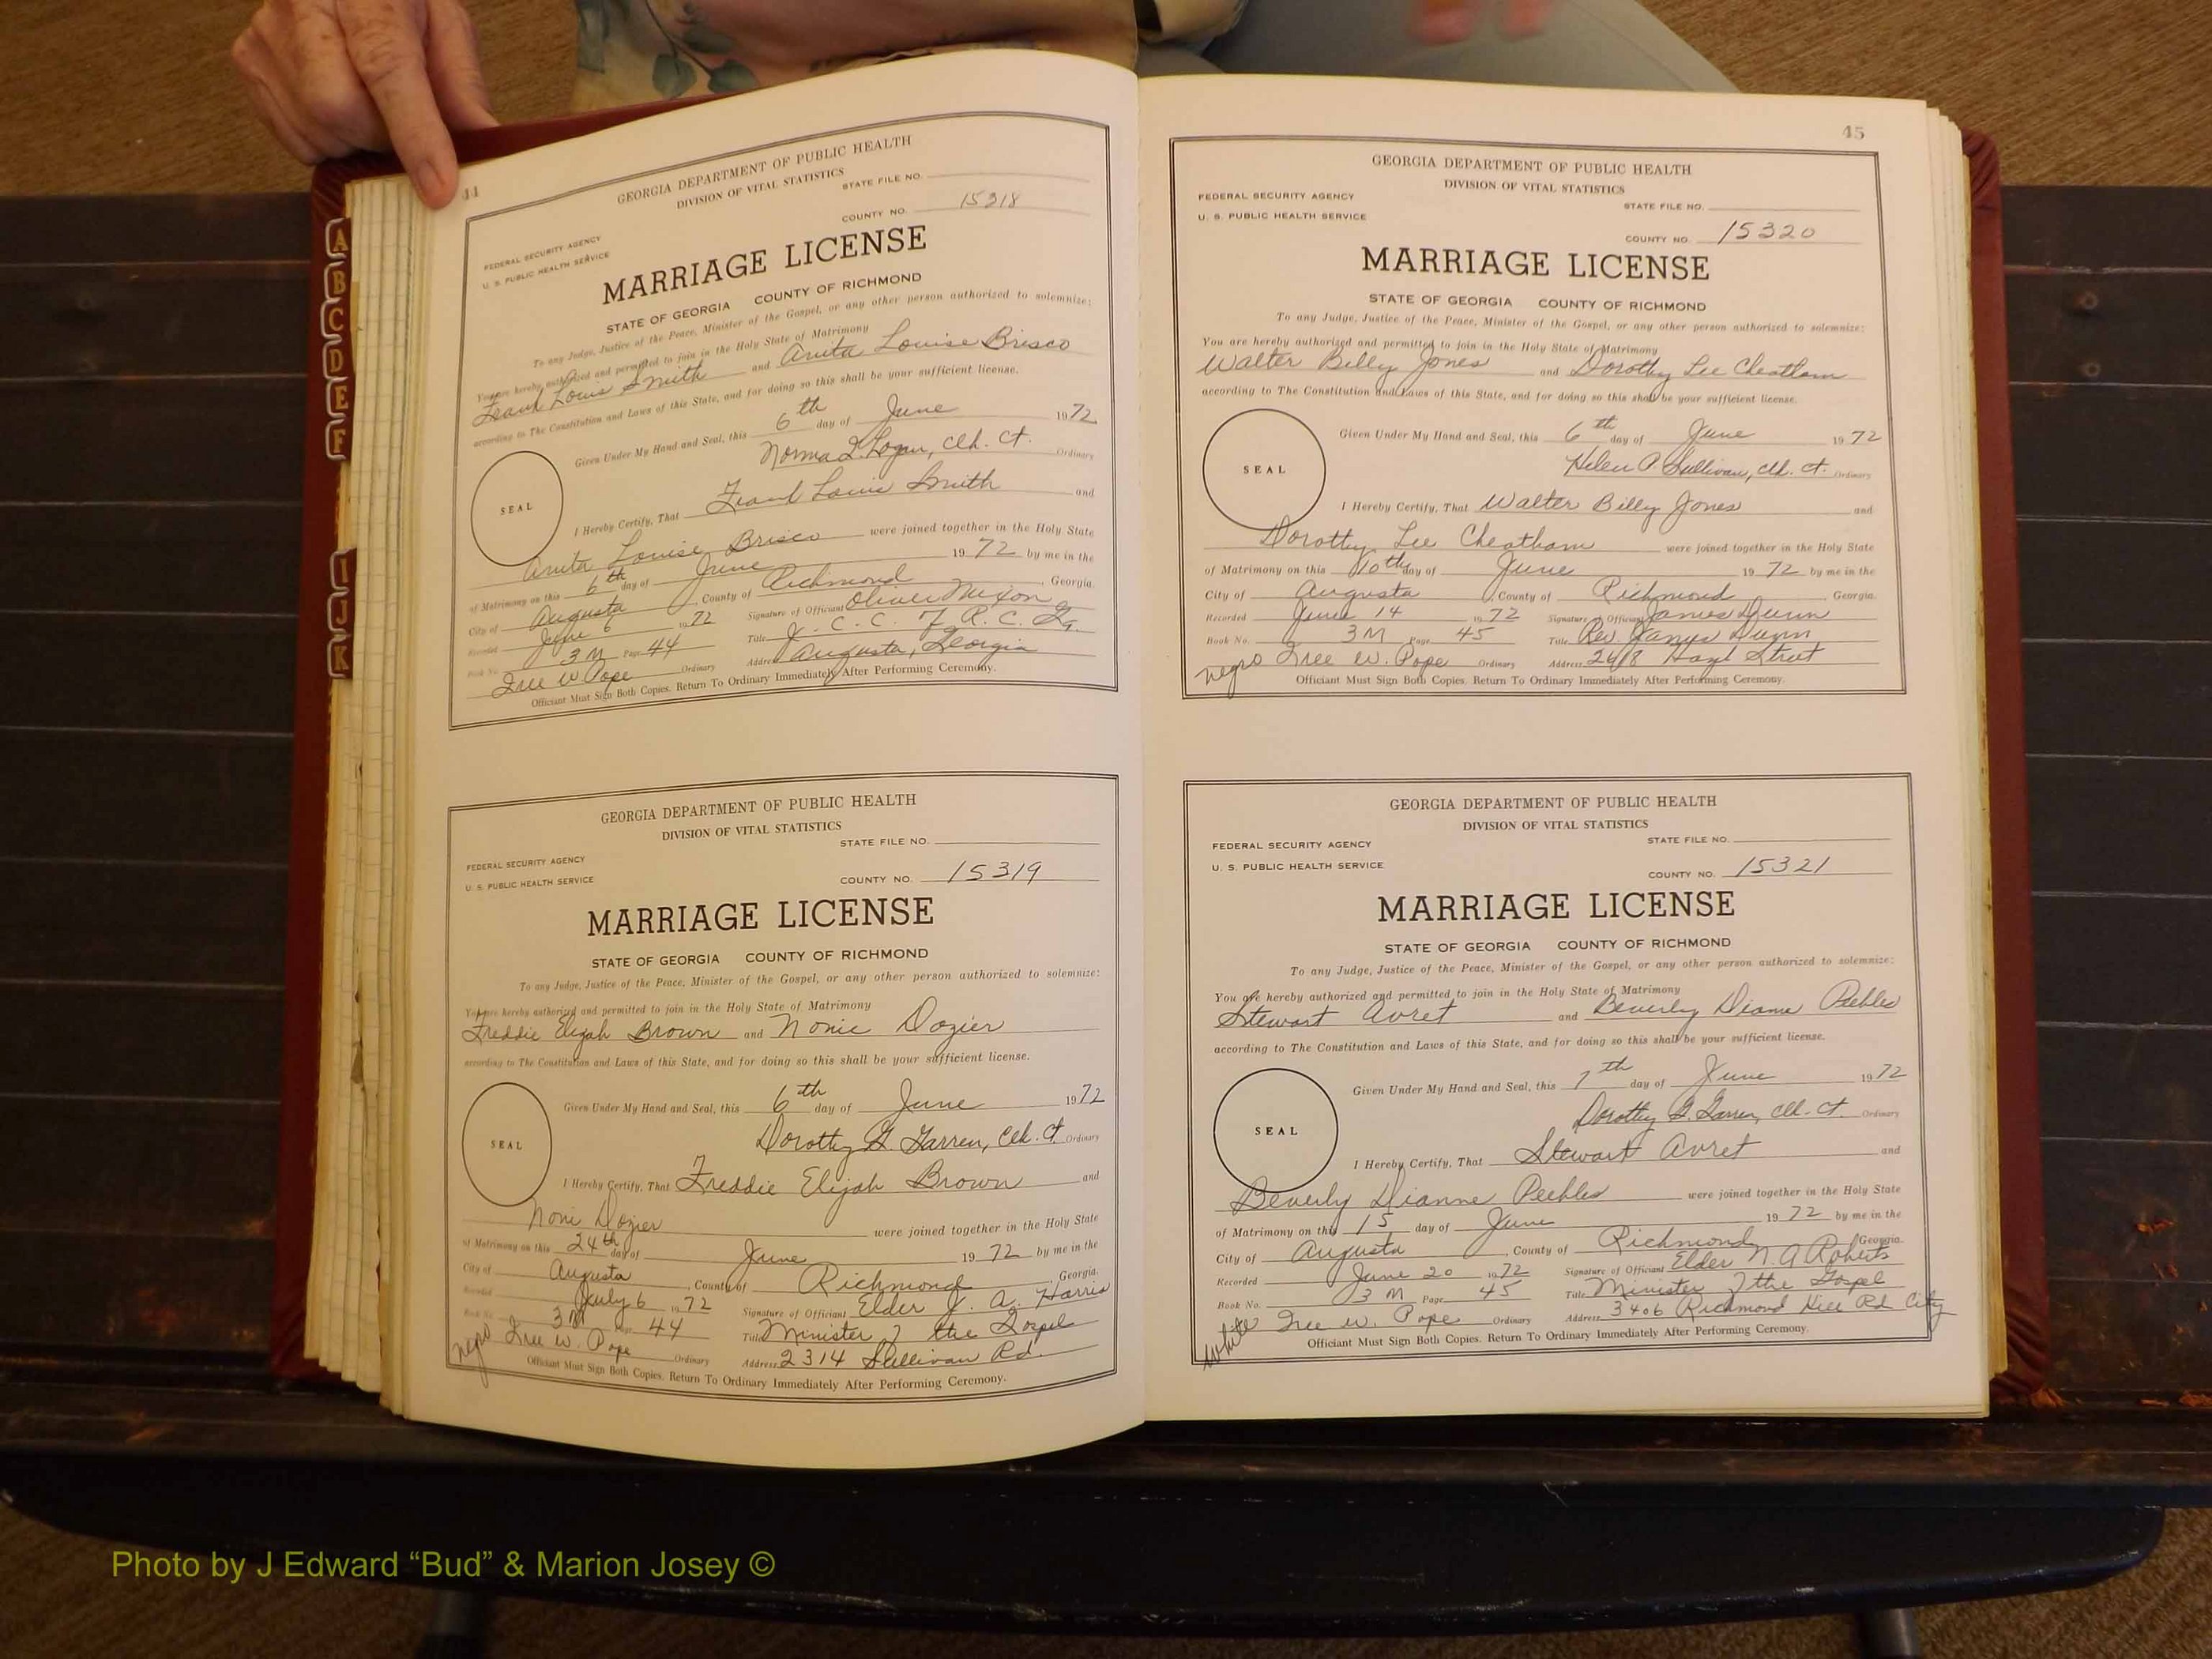 44
GEORGIA DEPARTMENT OF PUBLIC HEALTH
DIVISION OF VITAL STATISTICS
STATE FILE NO.
FEDERAL SECURITY AGENCY
U. S. PUBLIC HEALTH SERVICE
COUNTY NO. 15318
MARRIAGE LICENSE
STATE OF GEORGIA COUNTY OF RICHMOND
To any Judge, Justice of the Peace, Minister of the Gospel, or any other person authorized to solemnize:
You are hereby authorized and permitted to join in the Holy State of Matrimony
Frank Louis Smith and Anita Louise Brisco
according to The Constitution and Laws of this State, and for doing so this shall be your sufficient license.
Given Under My Hand and Seal, this 6th day of June 1972
Norma L. Logan, Clk. Ct. Ordinary
SEAL
I Hereby Certify, That Frank Louis Smith and
Anita Louise Brisco were joined together in the Holy State
of Matrimony on this 6th day of June 1972 by me in the
City of Augusta, County of Richmond, Georgia.
Recorded June 6 1972 Signature of Official Oliver Mixon
Book No. 3 M Page 44 Title J. C. C. of R. C. Ga.
Tree W Pope Ordinary Address Augusta, Georgia
Officiant Must Sign Both Copies. Return To Ordinary Immediately After Performing Ceremony.
GEORGIA DEPARTMENT OF PUBLIC HEALTH
DIVISION OF VITAL STATISTICS
STATE FILE NO.
FEDERAL SECURITY AGENCY
U. S. PUBLIC HEALTH SERVICE
COUNTY NO. 15319
MARRIAGE LICENSE
STATE OF GEORGIA COUNTY OF RICHMOND
To any Judge, Justice of the Peace, Minister of the Gospel, or any other person authorized to solemnize:
You are hereby authorized and permitted to join in the Holy State of Matrimony
Freddie Elijah Brown and Nonie Dozier
according to The Constitution and Laws of this State, and for doing so this shall be your sufficient license.
Given Under My Hand and Seal, this 6th day of June 1972
Dorothy G. Garren, Clk. Ct. Ordinary
SEAL
I Hereby Certify, That Freddie Elijah Brown and
Noni Dozier were joined together in the Holy State
of Matrimony on this 24th day of June 1972 by me in the
City of Augusta, County of Richmond, Georgia.
July 6 1972 Signature of Officiant Elder J. A. Harris
3 M Page 44 Title Minister of the Gospel
negro Tree W. Pope Ordinary Address 2314 Sullivan Rd.
Officiant Must Sign Both Copies. Return To Ordinary Immediately After Performing Ceremony.
45
GEORGIA DEPARTMENT OF PUBLIC HEALTH
DIVISION OF VITAL STATISTICS
FEDERAL SECURITY AGENCY
STATE FILE NO.
U. S. PUBLIC HEALTH SERVICE
COUNTY NO. 15320
MARRIAGE LICENSE
STATE OF GEORGIA COUNTY OF RICHMOND
To any Judge, Justice of the Peace, Minister of the Gospel, or any other person authorized to solemnize:
You are hereby authorized and permitted to join in the Holy State of Matrimony
Walter Billy Jones and Dorothy Lee Cheatham
according to The Constitution and Laws of this State, and for doing so this shall be your sufficient license.
Given Under My Hand and Seal, this 6th day of June 1972
Helen P. Sullivan, Clk. Ct. Ordinary
SEAL
I Hereby Certify, That Walter Billy Jones and
Dorothy Lee Cheatham were joined together in the Holy State
of Matrimony on this 10th day of June 1972 by me in the
City of Augusta County of Richmond Georgia.
Recorded June 14 1972 Signature of Officiant James Dunn
Book No. 3 M Page 45 Title Rev. James Dunn
negro Tree W. Pope Ordinary Address 2418 Hazel Street
Officiant Must Sign Both Copies. Return To Ordinary Immediately After Performing Ceremony.
GEORGIA DEPARTMENT OF PUBLIC HEALTH
DIVISION OF VITAL STATISTICS
STATE FILE NO.
FEDERAL SECURITY AGENCY
U. S. PUBLIC HEALTH SERVICE
COUNTY NO. 15321
MARRIAGE LICENSE
STATE OF GEORGIA COUNTY OF RICHMOND
To any Judge, Justice of the Peace, Minister of the Gospel, or any other person authorized to solemnize:
You are hereby authorized and permitted to join in the Holy State of Matrimony
Stewart Avret and Beverly Dianne Peebles
according to The Constitution and Laws of this State, and for doing so this shall be your sufficient license.
Given Under My Hand and Seal, this 7th day of June 1972
Dorothy G. Garren, Clk. Ct. Ordinary
SEAL
I Hereby Certify, That Stewart Avret and
Beverly Dianne Peebles were joined together in the Holy State
of Matrimony on this 15 day of June 1972 by me in the
City of Augusta, County of Richmond, Georgia.
Recorded June 20 1972 Signature of Officiant Elder N. A Roberts
Book No. 3 M Page 45 Title Minister of the Gospel
white Tree W. Pope Ordinary Address 3406 Richmond Hill Rd City
Officiant Must Sign Both Copies. Return To Ordinary Immediately After Performing Ceremony.
A
B
C
D
E
F
I
J
K
Photo by J Edward “Bud” & Marion Josey ©